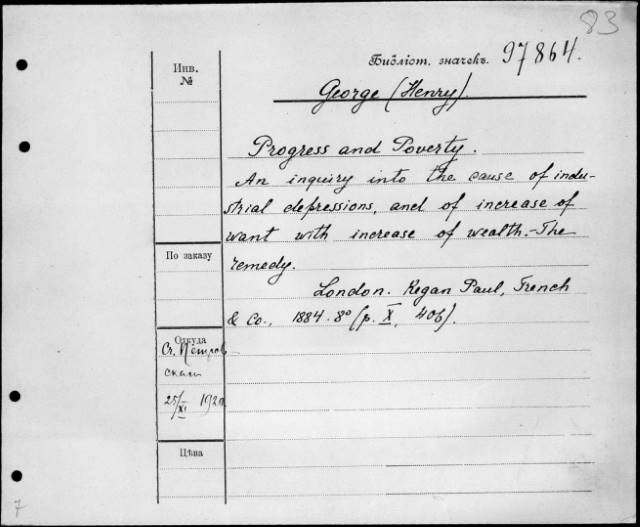 83
Библіот. значекъ. 97864.
Инв.
№
George (Henry).
Progress and Poverty.
An inquiry into the cause of indu-
strial depressions, and of increase of
want with increase of wealth.-The
remedy.
По заказу
London. Kegan Paul, Trench
& Co., 1884. 8° (p. X, 406).
Откуда
Ст. Петров
скаго
25/XI 1920
Цѣна
7